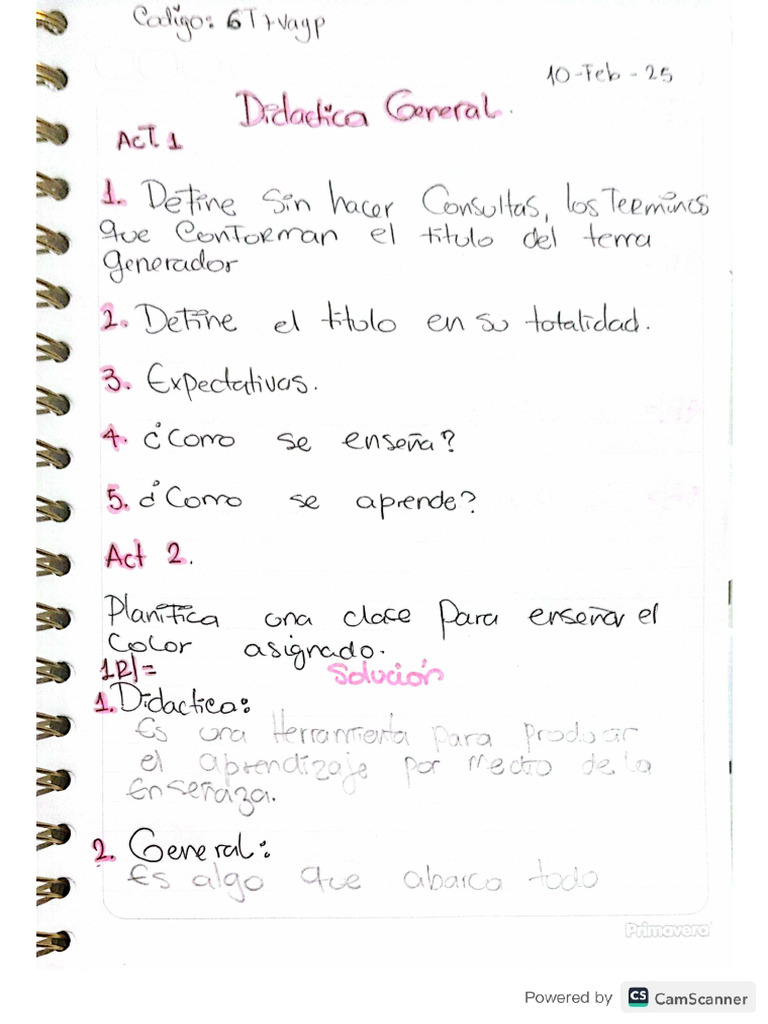 Codigo: 6T7vayp
10-Feb-25
Didactica General.
ACT 1
1. Define sin hacer Consultas, los Terminos
que conforman el titulo del tema
generador
2. Define el titulo en su totalidad.
3. Expectativas.
4. ¿Como se enseña?
5. ¿Como se aprende?
Act 2.
Planifica una clase para enseñar el
Color asignado.
1R/= Solución
1. Didactica:
Es una Herramienta para producir
el aprendizaje por medio de la
Enseñaza.
2. General:
Es algo que abarca todo
Primavera
Powered by CS CamScanner